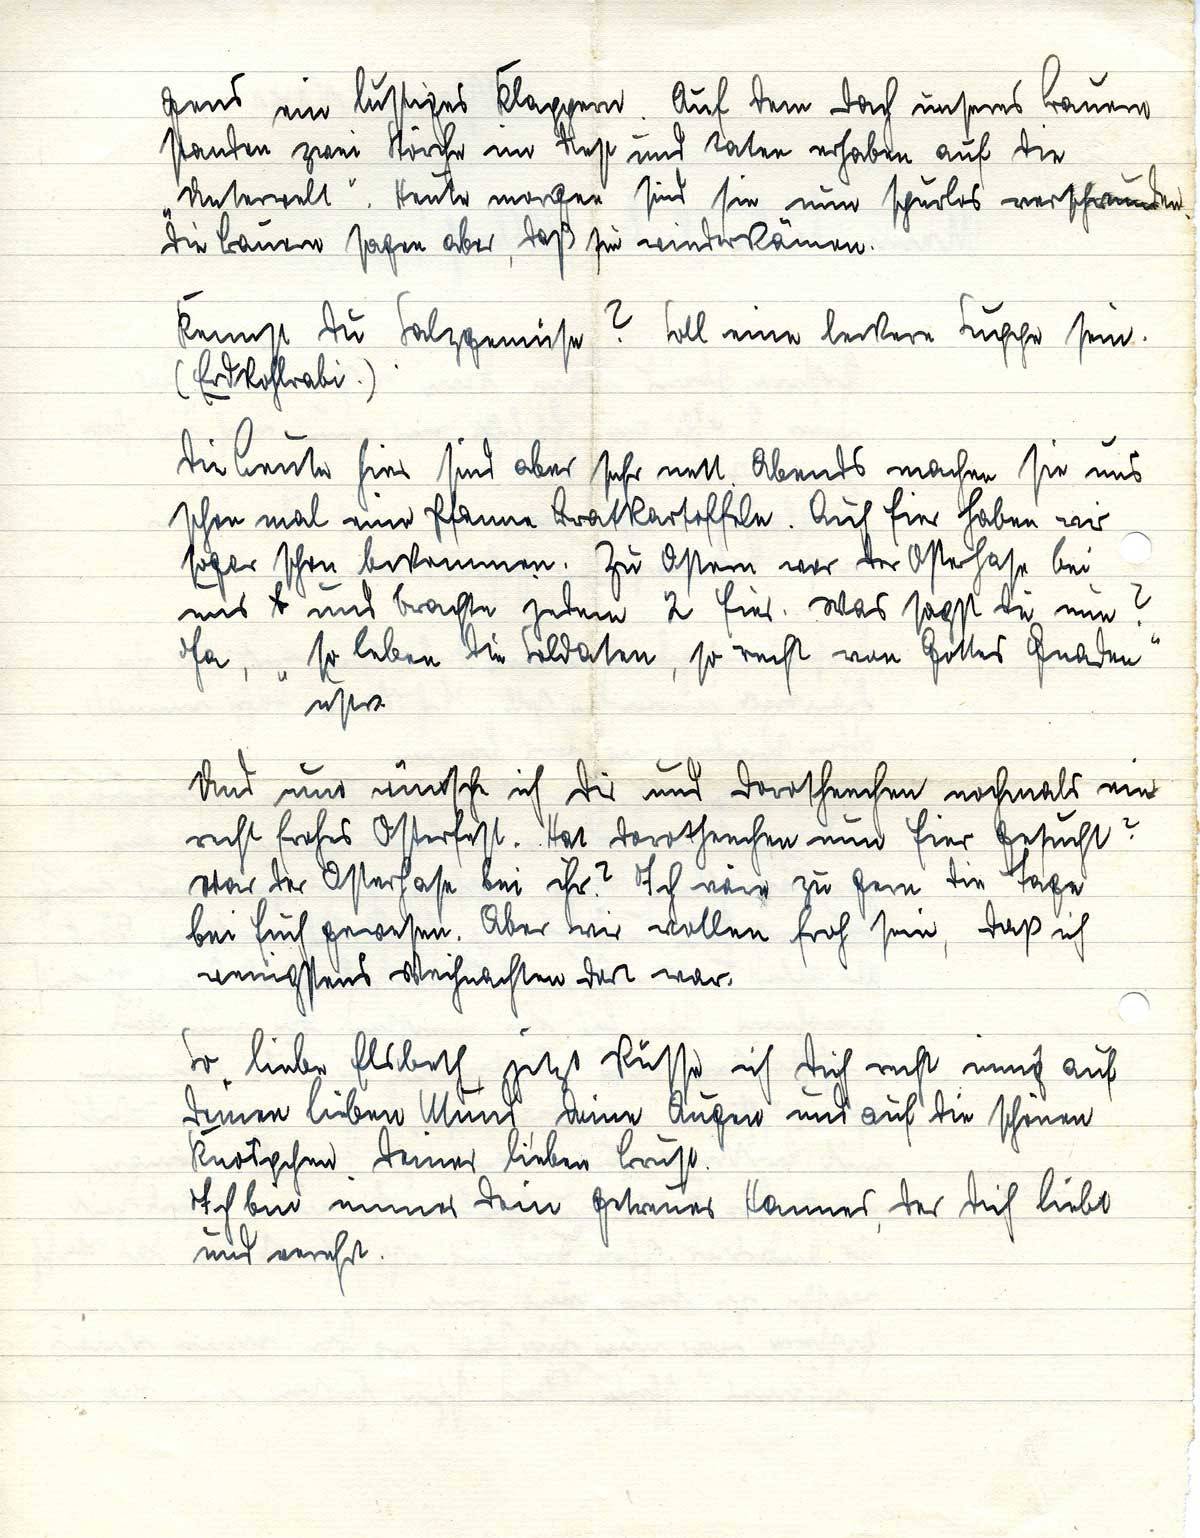 gens ein lustiges Klappern. Auf dem Dach unseres Bauern
standen zwei Störche im Nest und taten erhaben auf die
„Unterwelt“. Heute morgen sind sie nun spurlos verschwunden.
Die Bauern sagen aber, daß sie wiederkämen.
Kennst Du Salzgemüse? Soll eine leckere Suppe sein.
(Erdkohlrabi.)
Die Leute hier sind aber sehr nett. Abends machen sie uns
schon mal eine Pfanne Bratkartoffeln. Auch Eier haben wir
sogar schon bekommen. Zu Ostern war der Osterhase bei
uns und brachte jedem 2 Eier. Was sagst Du nun?
Ja, „so leben die Soldaten, so recht von Gottes Gnaden“
usw.
Und nun wünsche ich Dir und Dorotheechen nochmals ein
recht frohes Osterfest. Hat Dorotheechen nun Eier gesucht?
War der Osterhase bei ihr? Ich wäre zu gern die Tage
bei Euch gewesen. Aber wir wollen froh sein, daß ich
wenigstens Weihnachten dort war.
So, liebe Elsbeth, jetzt küsse ich Dich recht innig auf
Deinen lieben Mund, Deine Augen und auf die schönen
Knöspchen Deiner lieben Brust.
Ich bin immer Dein getreuer Hannes, der Dich liebt
und verehrt.